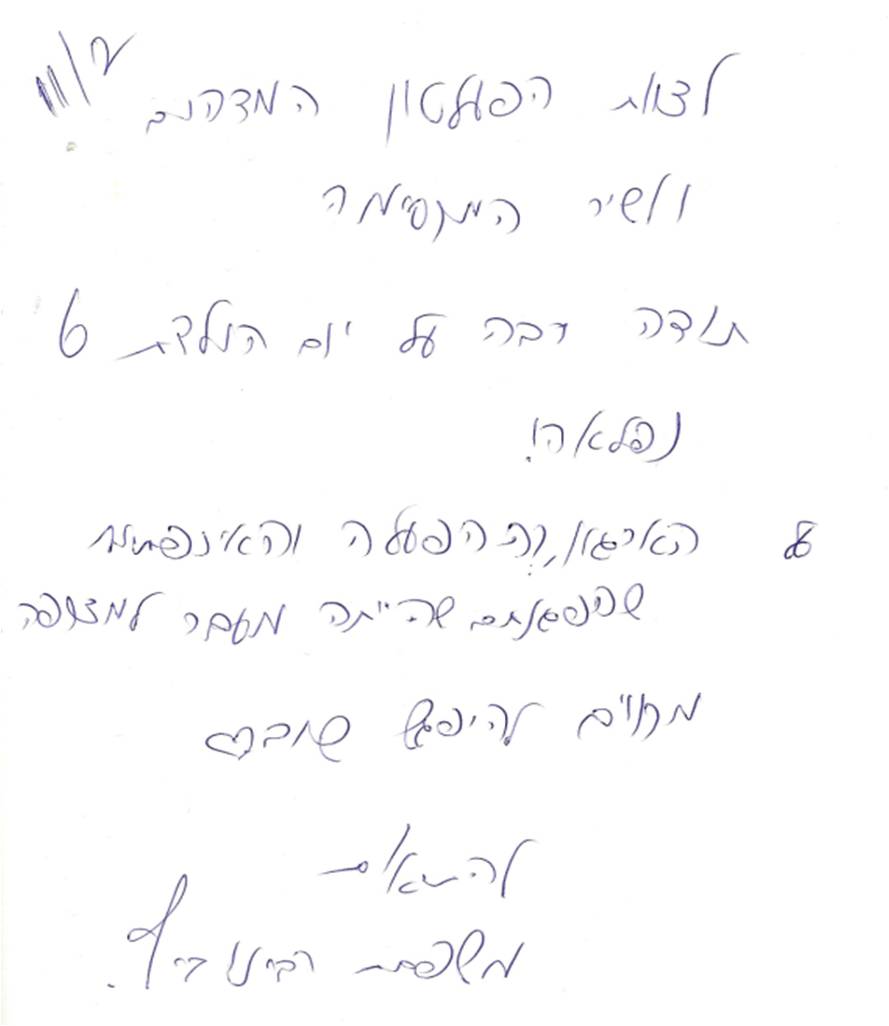 11/2
לצוות הפועלטון המדהים
ולשיר המקסימה
תודה רבה על יום הולדת 6
נפלאה!
על הארגון, ההפעלה והאינפורמציה
שהפגנתם שהייתה מעבר למצופה
מקווים להיפגש שוב ♡
להתראות
משפחת רבינוביץ.